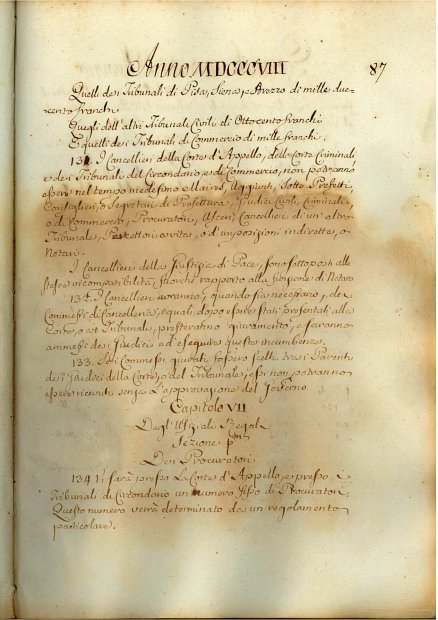 Anno MDCCCVIII 87
Quelli dei Tribunali di Pisa, Siena, e Arezzo di mille due-
cento franchi
Quegli dell'altri Tribunali Civili di Ottocento franchi
E quelli dei Tribunali di Commercio di mille franchi.
131. I Cancellieri della Corte d'Appello, delle Corti Criminali
e dei Tribunali del Circondario, e di Commercio, non potranno
essere nel tempo medesimo Maires, Aggiunti, Sotto Prefetti,
Consiglieri, o Segretari di Prefettura, Giudici Civili, Criminali,
o di Commercio, Procuratori, Uscieri Cancellieri di un'altro
Tribunale, Percettori diritte, o d'imposizioni indirette, o
Notari.
I Cancellieri della Giustizia di Pace, sono sottoposti alle
stesse incompatibilità, fuorchè rapporto alla funzione di Notaro
132. I Cancellieri avranno, quando sia necessario, de
Commessi di Cancelleria, i quali dopo essere stati presentati alla
Corte, o al Tribunale, presteranno giuramento, e saranno
ammessi dai Giudici ad eseguire queste incumbenze.
133. Se i Commessi giurati fossero scelti tra i Parenti
dei Giudici della Corte, o del Tribunale, essi non potranno
essere ricevuti senza l'approvazione del Governo.
Capitolo VII
Degl'Ufiziali Legali
Sezione p.ma
Dei Procuratori
134 Vi sarà presso la Corte d'Appello, e presso i
Tribunali di Circondario un numero fisso di Procuratori
Questo numero verrà determinato da un regolamento
particolare.